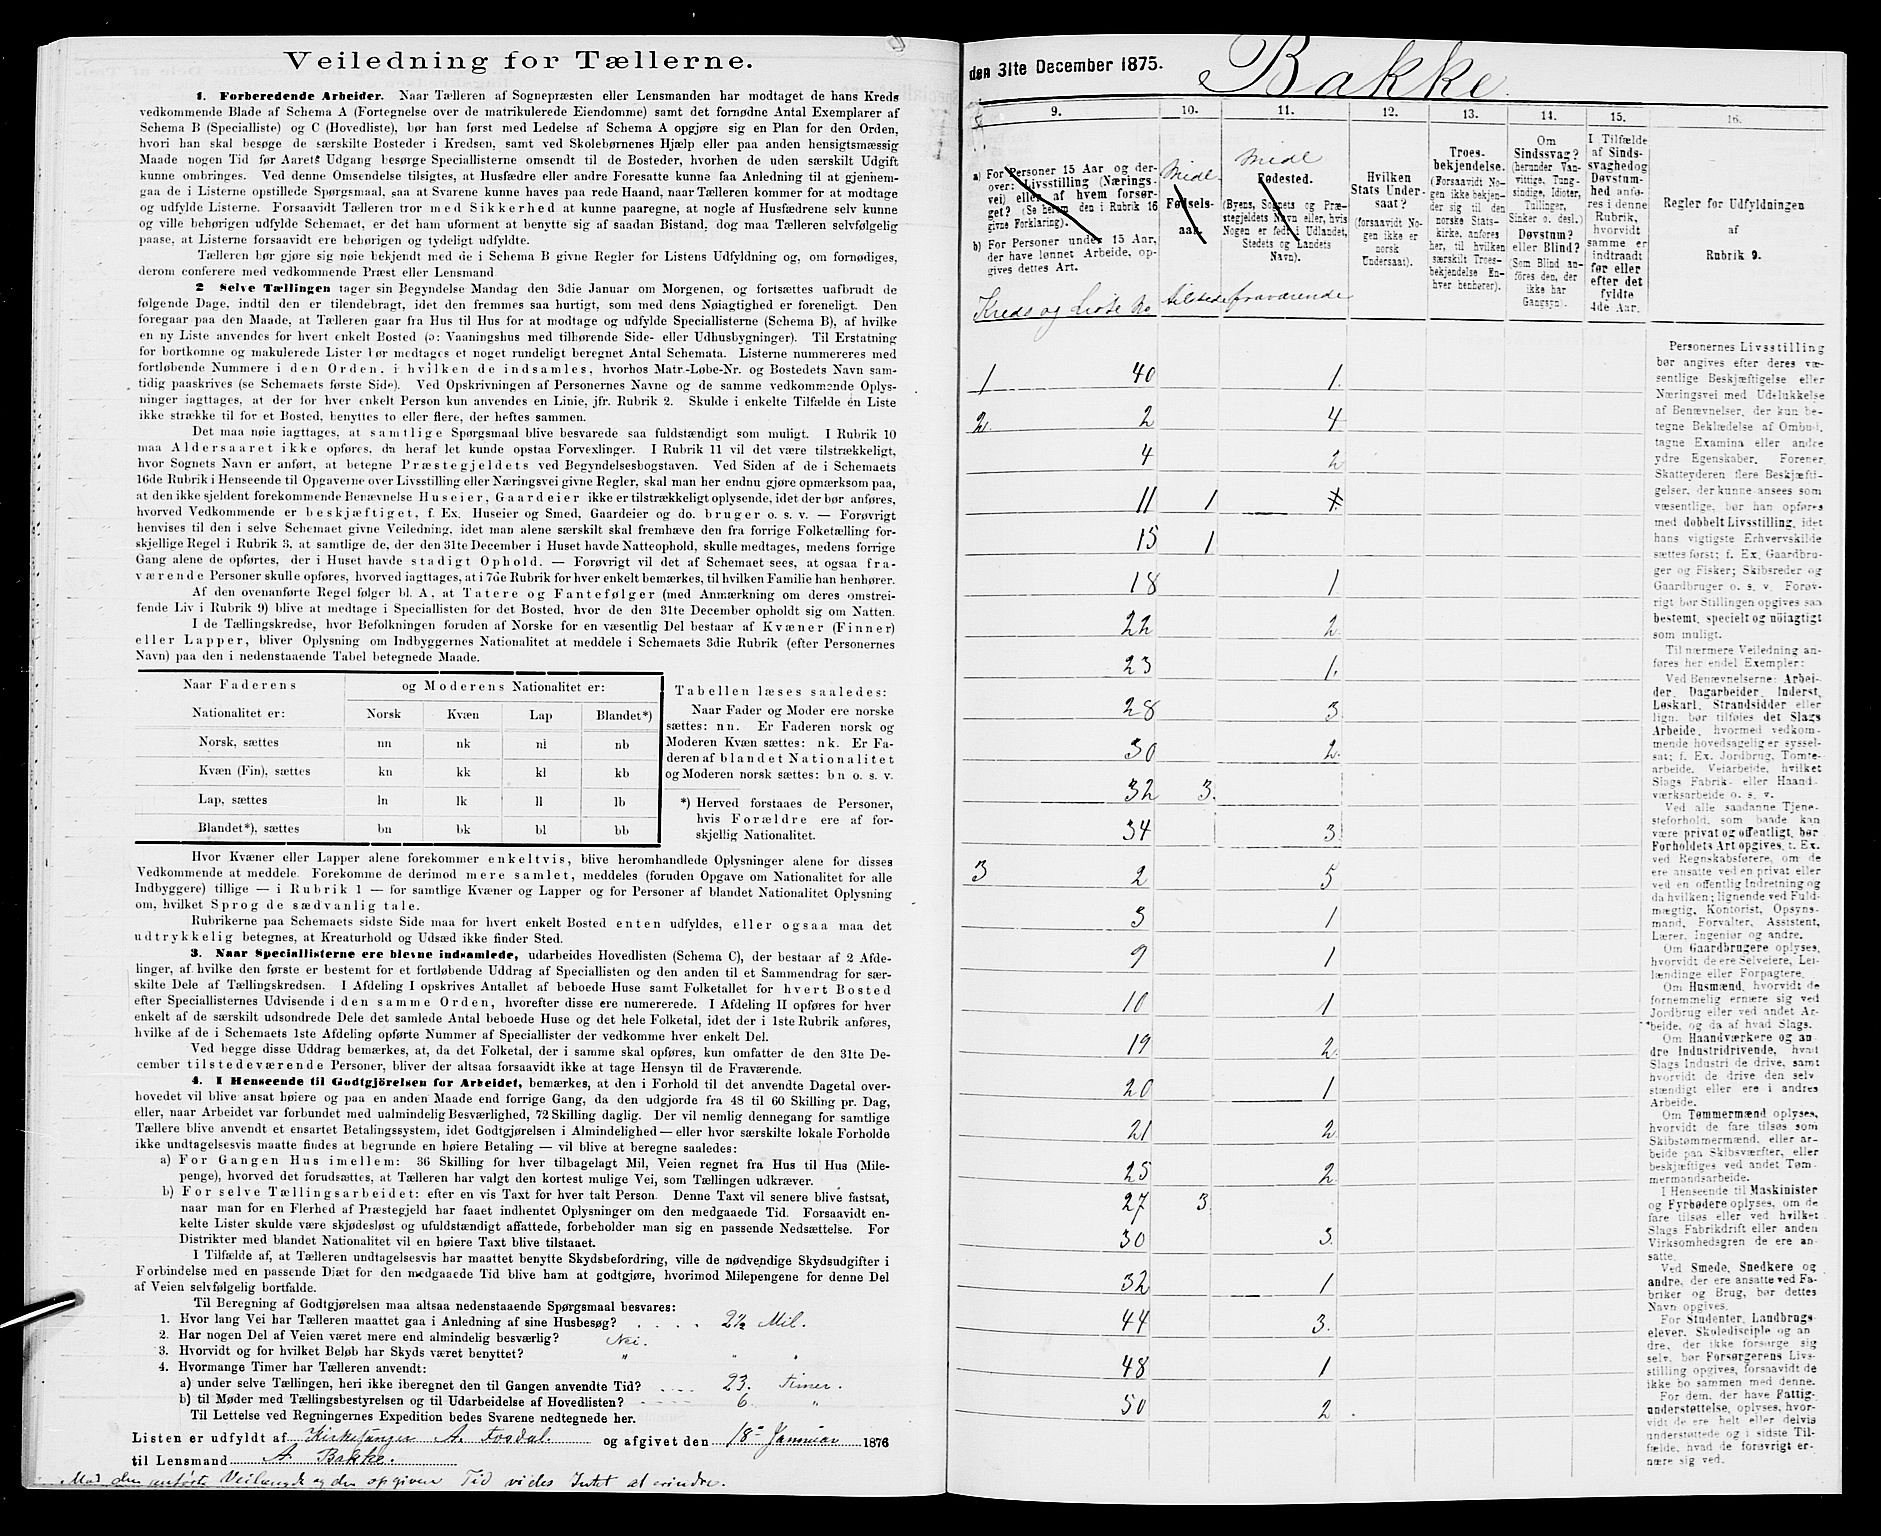 Veiledning for Tællerne.
1. Forberedende Arbeider. Naar Tælleren af Sognepræsten eller Lensmanden har modtaget de hans Kreds
vedkommende Blade af Schema A (Fortegnelse over de matrikulerede Eiendomme) samt det fornødne Antal Exemplarer af
Schema B (Specialliste) og C (Hovedliste), bør han først med Ledelse af Schema A opgjøre sig en Plan for den Orden,
hvori han skal besøge de særskilte Bosteder i Kredsen, samt ved Skolebørnenes Hjælp eller paa anden hensigtsmæssig
Maade nogen Tid før Aarets Udgang besørge Speciallisterne omsendt til de Bosteder, hvorhen de uden særskilt Udgift
kunne ombringes. Ved denne Omsendelse tilsigtes, at Husfædre eller andre Foresatte kunne faa Anledning til at gjennem-
gaa de i Listerne opstillede Spørgsmaal, saa at Svarene kunne haves paa rede Haand, naar Tælleren kommer for at modtage
og udfylde Listerne. Forsaavidt Tælleren tror med Sikkerhed at kunne paaregne, at nogle af Husfædrene selv kunne
og ville behørigen udfylde Schemaet, er det ham uforment at benytte sig af saadan Bistand, dog maa Tælleren selvfølgelig
paase, at Listerne forsaavidt ere behørigen og tydeligt udfyldte.
Tælleren bør gjøre sig nøie bekjendt med de i Schema B givne Regler for Listens Udfyldning og, om fornødiges,
derom conferere med vedkommende Præst eller Lensmand.
2 Selve Tællingen tager sin Begyndelse Mandag den 3die Januar om Morgenen, og fortsættes uafbrudt de
følgende Dage, indtil den er tilendebragt, idet den fremmes saa hurtigt, som med dens Nøiagtighed er foreneligt. Den
foregaar paa den Maade, at Tælleren gaar fra Hus til Hus for at modtage og udfylde Speciallisterne (Schema B), af hvilke
en ny Liste anvendes for hvert enkelt Bosted (ɔ: Vaaningshus med tilhørende Side- eller Udhusbygninger). Til Erstatning
for bortkomne og makulerede Lister bør medtages et noget rundeligt beregnet Antal Schemata. Listerne nummereres med
fortløbende Nummere i den Orden, i hvilken de indsamles, hvorhos Matr.-Løbe-Nr. og Bostedets Navn sam-
tidig paaskrives (se Schemaets første Side). Ved Opskrivningen af Personernes Navne og de samme vedkommende Oplys-
ninger iagttages, at der for hver enkelt Person kun anvendes en Linie, jfr. Rubrik 2. Skulde i enkelte Tilfælde én Liste
ikke strække til for et Bosted, benyttes to eller flere, der heftes sammen.
Det maa nøie iagttages, at samtlige Spørgsmaal blive besvarede saa fuldstændigt som muligt. I Rubrik 10
maa Aldersaaret ikke opføres, da heraf let kunde opstaa Forvexlinger. I Rubrik 11 vil det være tilstrækkeligt,
hvor Sognets Navn er anført, at betegne Præstegjeldets ved Begyndelsesbogstaven. Ved Siden af de i Schemaets
16de Rubrik i Henseende til Opgaverne over Livsstilling eller Næringsvei givne Regler, skal man her endnu gjøre opmærksom paa,
at den ikke sjeldent forekommende Benævnelse Huseier, Gaardeier ikke er tilstrækkeligt oplysende, idet der bør anføres,
hvorved Vedkommende er beskjæftiget, f. Ex. Huseier og Smed, Gaardeier og do. bruger o. s. v. — Forøvrigt
henvises til den i selve Schemaet givne Veiledning, idet man alene særskilt skal fremhæve den fra forrige Folketælling for-
skjellige Regel i Rubrik 3, at samtlige de, der den 31te December i Huset havde Natteophold, skulle medtages, medens forrige
Gang alene de opførtes, der i Huset havde stadigt Ophold. — Forøvrigt vil det af Schemaet sees, at ogsaa fra-
værende Personer skulle opføres, hvorved iagttages, at i 7de Rubrik for hver enkelt bemærkes, til hvilken Familie han henhører.
Af den ovenanførte Regel følger bl. A, at Tatere og Fantefølger (med Anmærkning om deres omstrei-
fende Liv i Rubrik 9) blive at medtage i Speciallisten for det Bosted, hvor de den 31te December opholdt sig om Natten.
I de Tællingskredse, hvor Befolkningen foruden af Norske for en væsentlig Del bestaar af Kvæner (Finner)
eller Lapper, bliver Oplysning om Indbyggernes Nationalitet at meddele i Schemaets 3die Rubrik (efter Personernes
Navn) paa den i nedenstaaende Tabel betegnede Maade.
Naar Faderens og Moderens Nationalitet er:
Nationalitet er: Norsk Kvæn Lap Blandet*)
Norsk, sættes nn nk nl nb
Kvæn (Fin), sættes kn kk kl kb
Lap, sættes ln lk ll lb
Blandet*), sættes bn bk bl bb
Tabellen læses saaledes:
Naar Fader og Moder ere norske
sættes: nn. Er Faderen norsk og
Moderen Kvæn sættes: nk. Er Fa-
deren af blandet Nationalitet
og Moderen norsk sættes: bn o. s. v.
*) Herved forstaaes de Personer,
hvis Forældre ere af for-
skjellig Nationalitet.
Hvor Kvæner eller Lapper alene forekommer enkeltvis, blive heromhandlede Oplysninger alene for disses
Vedkommende at meddele. Forekomme de derimod mere samlet, meddeles (foruden Opgave om Nationalitet for alle
Indbyggere) tillige — i Rubrik 1 — for samtlige Kvæner og Lapper og for Personer af blandet Nationalitet Oplysning
om, hvilket Sprog de sædvanlig tale.
Rubrikerne paa Schemaets sidste Side maa for hvert enkelt Bosted enten udfyldes, eller ogsaa maa det
udtrykkelig betegnes, at Kreaturhold og Udsæd ikke finder Sted.
3. Naar Speciallisterne ere blevne indsamlede, udarbeides Hovedlisten (Schema C), der bestaar af 2 Afde-
linger, af hvilke den første er bestemt for et fortløbende Uddrag af Speciallisten og den anden til et Sammendrag for sær-
skilte Dele af Tællingskredsen. I Afdeling I opskrives Antallet af beboede Huse samt Folketallet for hvert Bosted
efter Speciallisternes Udvisende i den samme Orden, hvorefter disse ere numererede. I Afdeling II opføres for hver
enkelt af de særskilt udsondrede Dele det samlede Antal beboede Huse og det hele Folketal, idet der i 1ste Rubrik anføres,
hvilke af de i Schemaets 1ste Afdeling opførte Nummer af Speciallister der vedkomme hver enkelt Del.
Ved begge disse Uddrag bemærkes, at, da det Folketal, der i samme skal opføres, kun omfatter de den 31te De-
cember tilstedeværende Personer, bliver der altsaa forsaavidt ikke at tage Hensyn til de Fraværende.
4. I Henseende til Godtgjörelsen for Arbeidet, bemærkes, at den i Forhold til det anvendte Dagetal over-
hovedet vil blive ansat høiere og paa en anden Maade end forrige Gang, da den udgjorde fra 48 til 60 Skilling pr. Dag,
eller, naar Arbeidet var forbundet med ualmindelig Besværlighed, 72 Skilling daglig. Der vil nemlig dennegang for samtlige
Tællere blive anvendt et ensartet Betalingssystem, idet Godtgjørelsen i Almindelighed — eller hvor særskilte lokale Forholde
ikke undtagelsesvis maatte findes at begrunde en høiere Betaling — vil blive at beregne saaledes:
a) For Gangen Hus imellem: 36 Skilling for hver tilbagelagt Mil, Veien regnet fra Hus til Hus (Mile-
penge), hvorved det forudsættes, at Tælleren har valgt den kortest mulige Vei, som Tællingen udkræver.
b) For selve Tællingsarbeidet: efter en vis Taxt for hver talt Person. Denne Taxt vil senere blive fastsat,
naar man for en Flerhed af Præstegjeld har faaet indhentet Oplysninger om den medgaaede Tid. Forsaavidt en-
kelte Lister skulde være skjødesløst og ufuldstændigt affattede, forbeholder man sig en passende Nedsættelse. For
Distrikter med blandet Nationalitet vil en høiere Taxt blive tilstaaet.
I Tilfælde af, at Tælleren undtagelsesvis har maattet benytte Skydsbefordring, ville de nødvendige Skydsudgifter i
Forbindelse med en passende Diæt for den medgaaede Tid blive ham at godtgjøre, hvorimod Milepengene for denne Del
af Veien selvfølgelig bortfalde.
Til Beregning af Godtgjørelsen maa altsaa nedenstaaende Spørgsmaal besvares:
1. Hvor lang Vei har Tælleren maattet gaa i Anledning af sine Husbesøg? 2½ Mil.
2. Har nogen Del af Veien været mere end almindelig besværlig? Nei.
3. Hvorvidt og for hvilket Beløb har Skyds været benyttet? " " "
4. Hvormange Timer har Tælleren anvendt:
a) under selve Tællingen, heri ikke iberegnet den til Gangen anvendte Tid? 23. Timer.
b) til Møder med Tællingsbestyrelsen og til Udarbeidelse af Hovedlisten? 6. "
Til Lettelse ved Regningernes Expedition bedes Svarene nedtegnede her.
Listen er udfyldt af Kirkesanger A. Fosdal. og afgivet den 18 Januar 1876
til Lensmand A. Bakke.
Mod den anførte Veilængde og den opgivne Tid vides Intet at erindre.
den 31te December 1875. Bakke.
9. 10. 11. 12. 13. 14. 15. 16.
a) For Personer 15 Aar og der-
over: Livsstilling (Nærings-
vei) eller af hvem forsør-
get? (Se herom den i Rubrik 16
givne Forklaring).
b) For Personer under 15 Aar,
der have lønnet Arbeide, op-
gives dettes Art.
Midl
Fødsels-
aar.
Midl
Fødested.
(Byens, Sognets og Præ-
stegjeldets Navn eller, hvis
Nogen er født i Udlandet,
Stedets og Landets
Navn).
Hvilken
Stats Under-
saat?
(forsaavidt No-
gen ikke er
norsk
Undersaat).
Troes-
bekjendelse.
(Forsaavidt No-
gen ikke bekjen-
der sig til den
norske Stats-
kirke, anføres
her, til hvilken
særskilt Troes-
bekjendelse En-
hver henhører).
Om
Sindssvag?
(herunder Van-
vittige, Tung-
sindige, Idioter,
Tullinger,
Sinker o. desl.)
Døvstum?
eller Blind?
(Som Blind an-
føres den, der
ikke har
Gangsyn).
I Tilfælde
af Sinds-
svaghed og
Døvstum-
hed anfø-
res i denne
Rubrik,
hvorvidt
samme er
indtraadt
før eller
efter det
fyldte
4de Aar.
Regler for Udfyldningen
af
Rubrik 9.
Kreds og Liste No tilstede fraværende
1 40 1.
2. 2 4
4 2
11 1
15 1
18 1
22 2.
23 1.
28 3.
30 2.
32 3.
34 3.
3 2 5
3 1
9 1
10 1
19 2.
20 1
21 2.
25 2
27 3.
30 3.
32 1
44 3.
48 1
50 2.
Personernes Livsstilling
bør angives efter deres væ-
sentlige Beskjæftigelse eller
Næringsvei med Udelukkelse
af Benævnelser, der kun be-
tegne Beklædelse af Ombud,
tagne Examina eller andre
ydre Egenskaber. Forener
Skatteyderen flere Beskjæfti-
gelser, der kunne ansees som
væsentlige, bør han opføres
med dobbelt Livsstilling, idet
hans vigtigste Erhvervskilde
sættes først; f. Ex. Gaardbru-
ger og Fisker; Skibsreder og
Gaardbruger o. s. v. Forøv-
rigt bør Stillingen opgives saa
bestemt, specielt og nöiagtigt
som muligt.
Til nærmere Veiledning an-
føres her endel Exempler:
Ved Benævnelserne: Arbei-
der, Dagarbeider, Inderst,
Løskarl, Strandsidder eller
lign. bør tilføies det Slags
Arbeide, hvormed vedkom-
mende hovedsagelig er syssel-
sat; f. Ex. Jordbrug, Tomte-
arbeide, Veiarbeide, hvilket
Slags Fabrik- eller Haand-
værksarbeide o. s. v.
Ved alle saadanne Tjene-
steforhold, som baade kan
være privat og offentligt, bør
Forholdets Art opgives, f. Ex.
ved Regnskabsførere, om de
ere ansatte ved en privat eller
ved en offentlig Indretning og
da hvilken; lignende ved Fuld-
mægtig, Kontorist, Opsyns-
mand, Forvalter, Assistent,
Lærer, Ingeniør og andre.
Om Gaardbrugere oplyses,
hvorvidt de ere Selveiere, Lei-
lændinge eller Forpagtere.
Om Husmænd, hvorvidt de
fornemmelig ernære sig ved
Jordbrug eller ved andet Ar-
beide, og da af hvad Slags.
Om Haandværkere og an-
dre Industridrivende, hvad
Slags Industri de drive, samt
hvorvidt de drive den selv-
stændigt eller ere i andres
Arbeide.
Om Tømmermænd oplyses,
hvorvidt de fare tilsøs som
Skibstømmermænd, eller ar-
beide paa Skibsværfter, eller
beskjæftiges ved andet Tøm-
mermandsarbeide.
I Henseende til Maskinister
og Fyrbødere oplyses, om de
fare tilsøs eller ved hvilket
Slags Fabrikdrift eller anden
Virksomhedsgren de ere an-
satte.
Ved Smede, Snedkere og
andre, der ere ansatte ved Fa-
briker og Brug, bør dettes
Navn opgives.
For Studenter, Landbrugs-
elever, Skoledisciple og an
dre, der ikke forsørge sig
selv, bør Forsørgerens Livs-
stilling opgives, forsaavidt de
ikke bo sammen med denne.
For dem, der have Fattig-
understøttelse, oplyses, hvor-
vidt de ere helt eller delvis
understøttede og i sidste Til-
fælde, hvad de forøvrigt er-
nære sig ved.